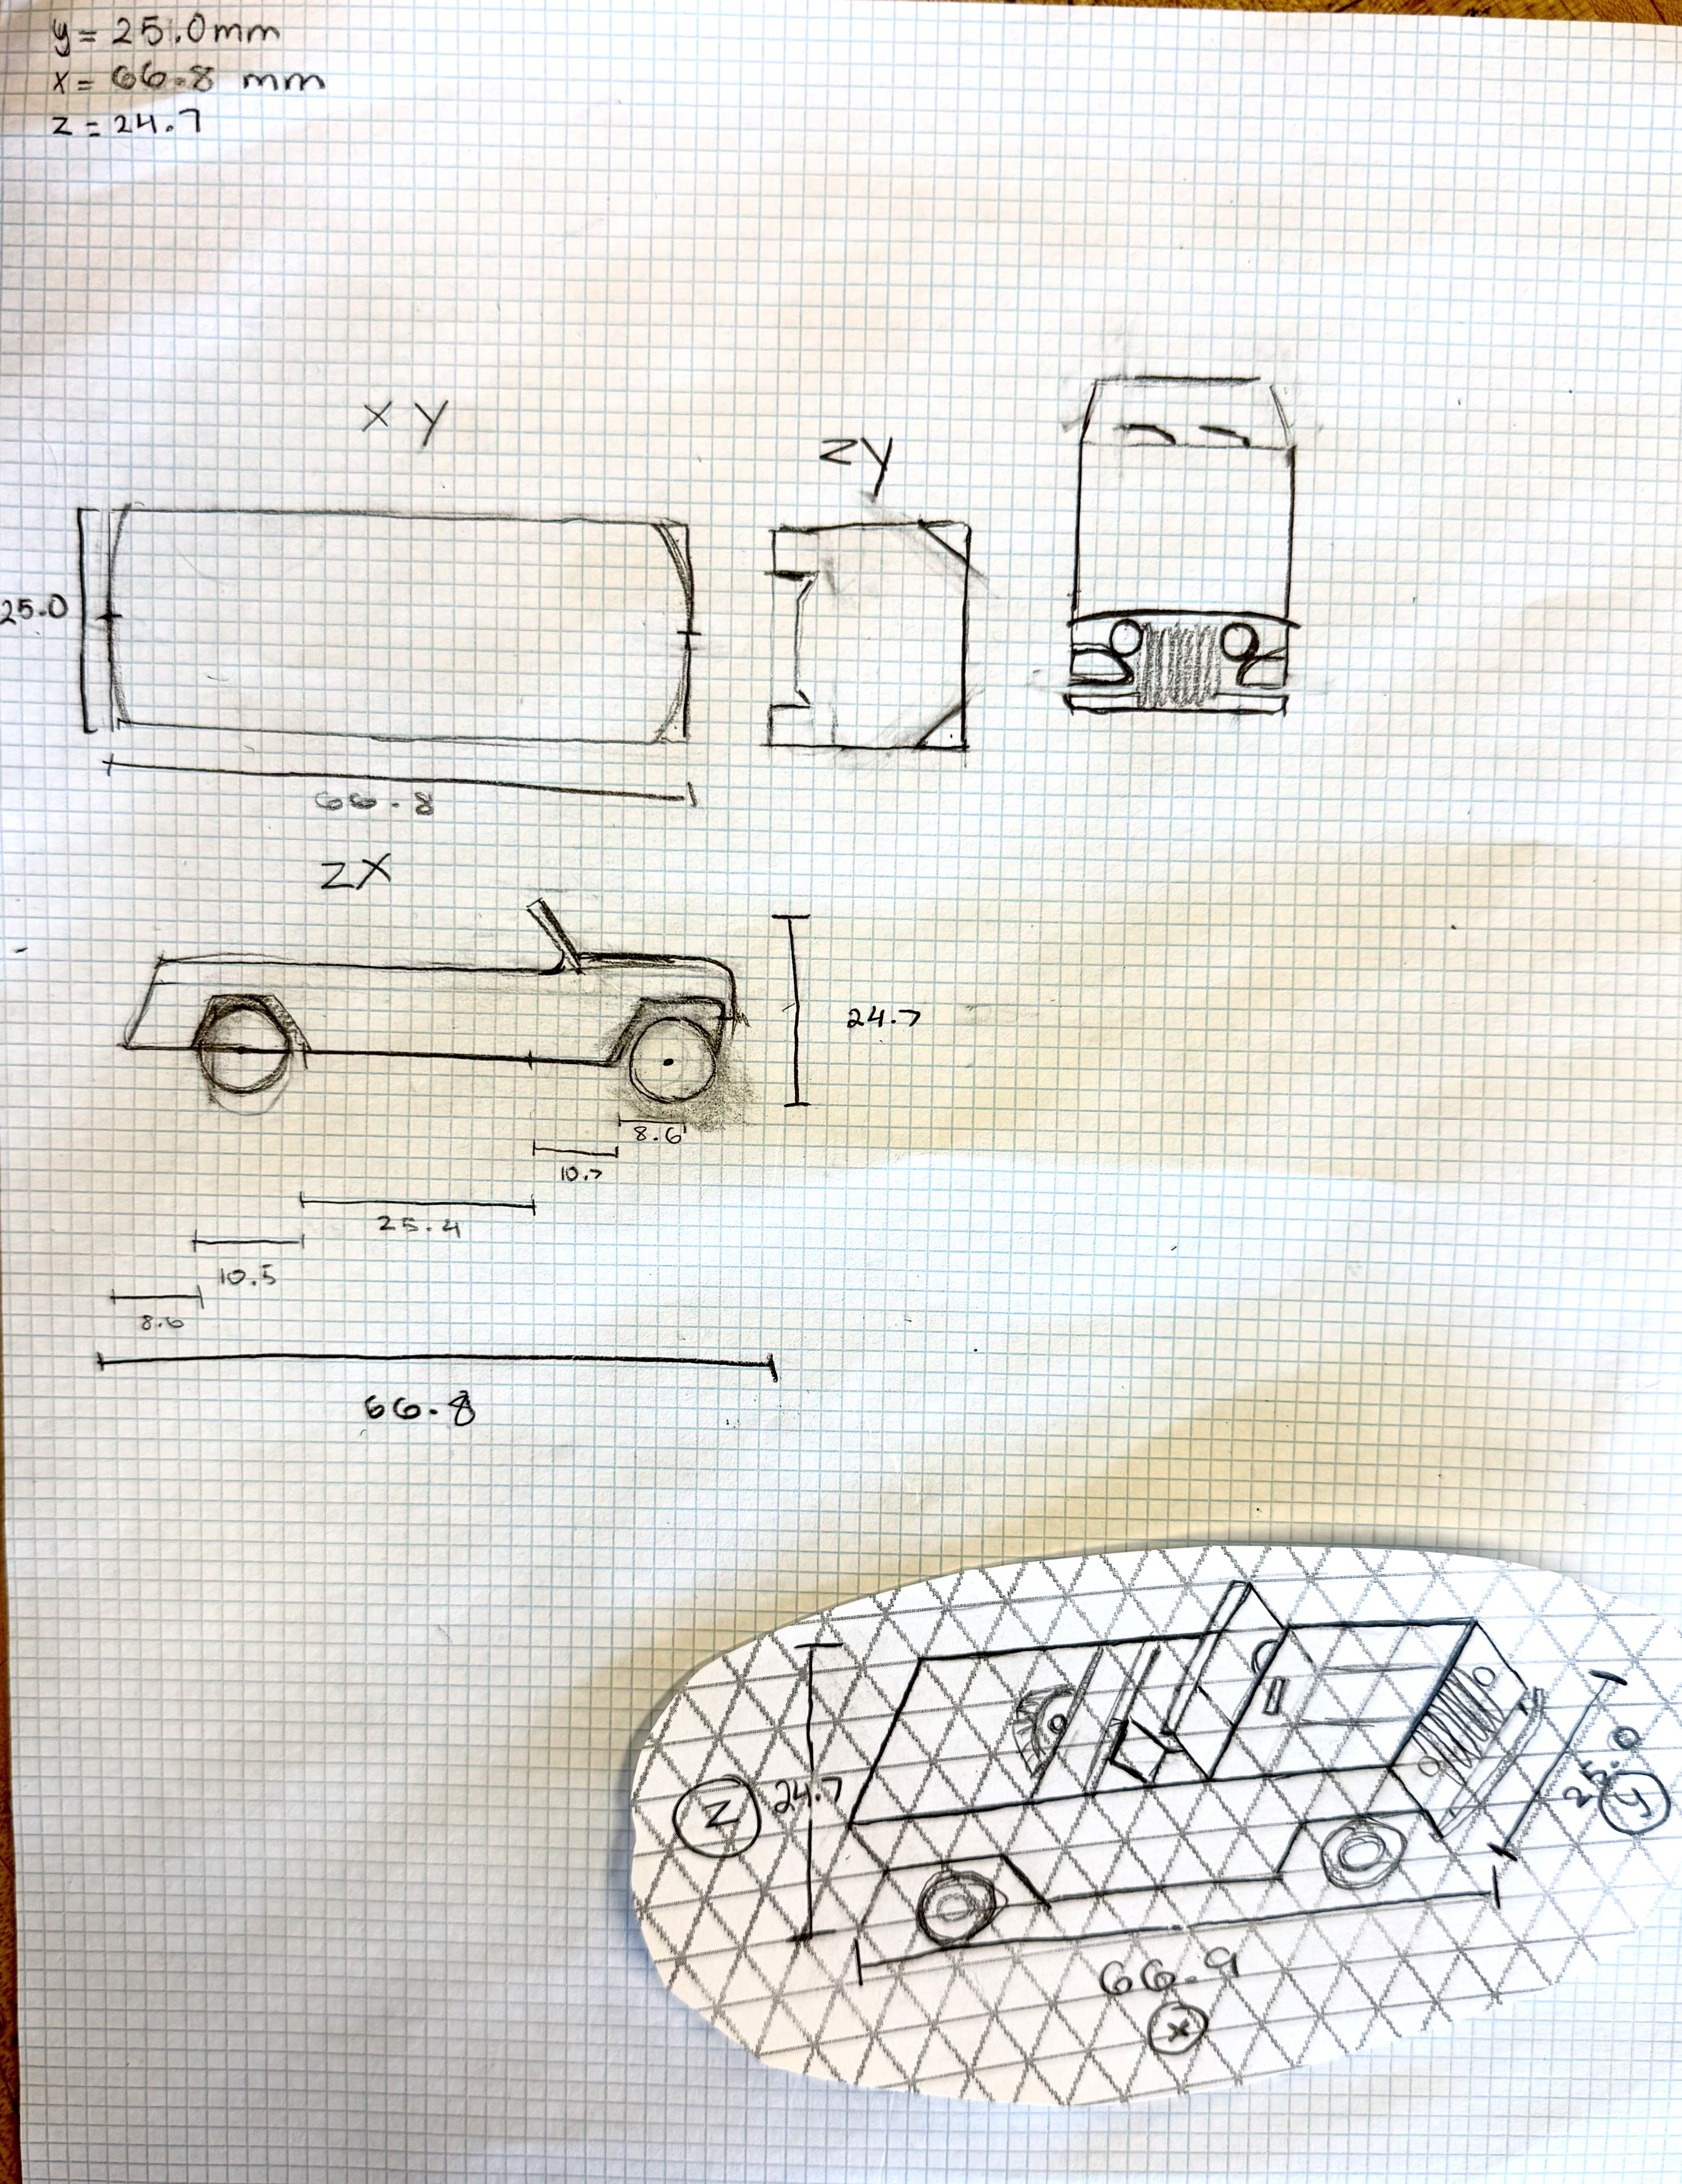 y = 25.0mm
x = 66.8 mm
z = 24.7
XY
ZY
25.0
66.8
ZX
24.7
8.6
10.7
25.4
10.5
8.6
66.8
Z
24.7
25.0
y
66.9
x